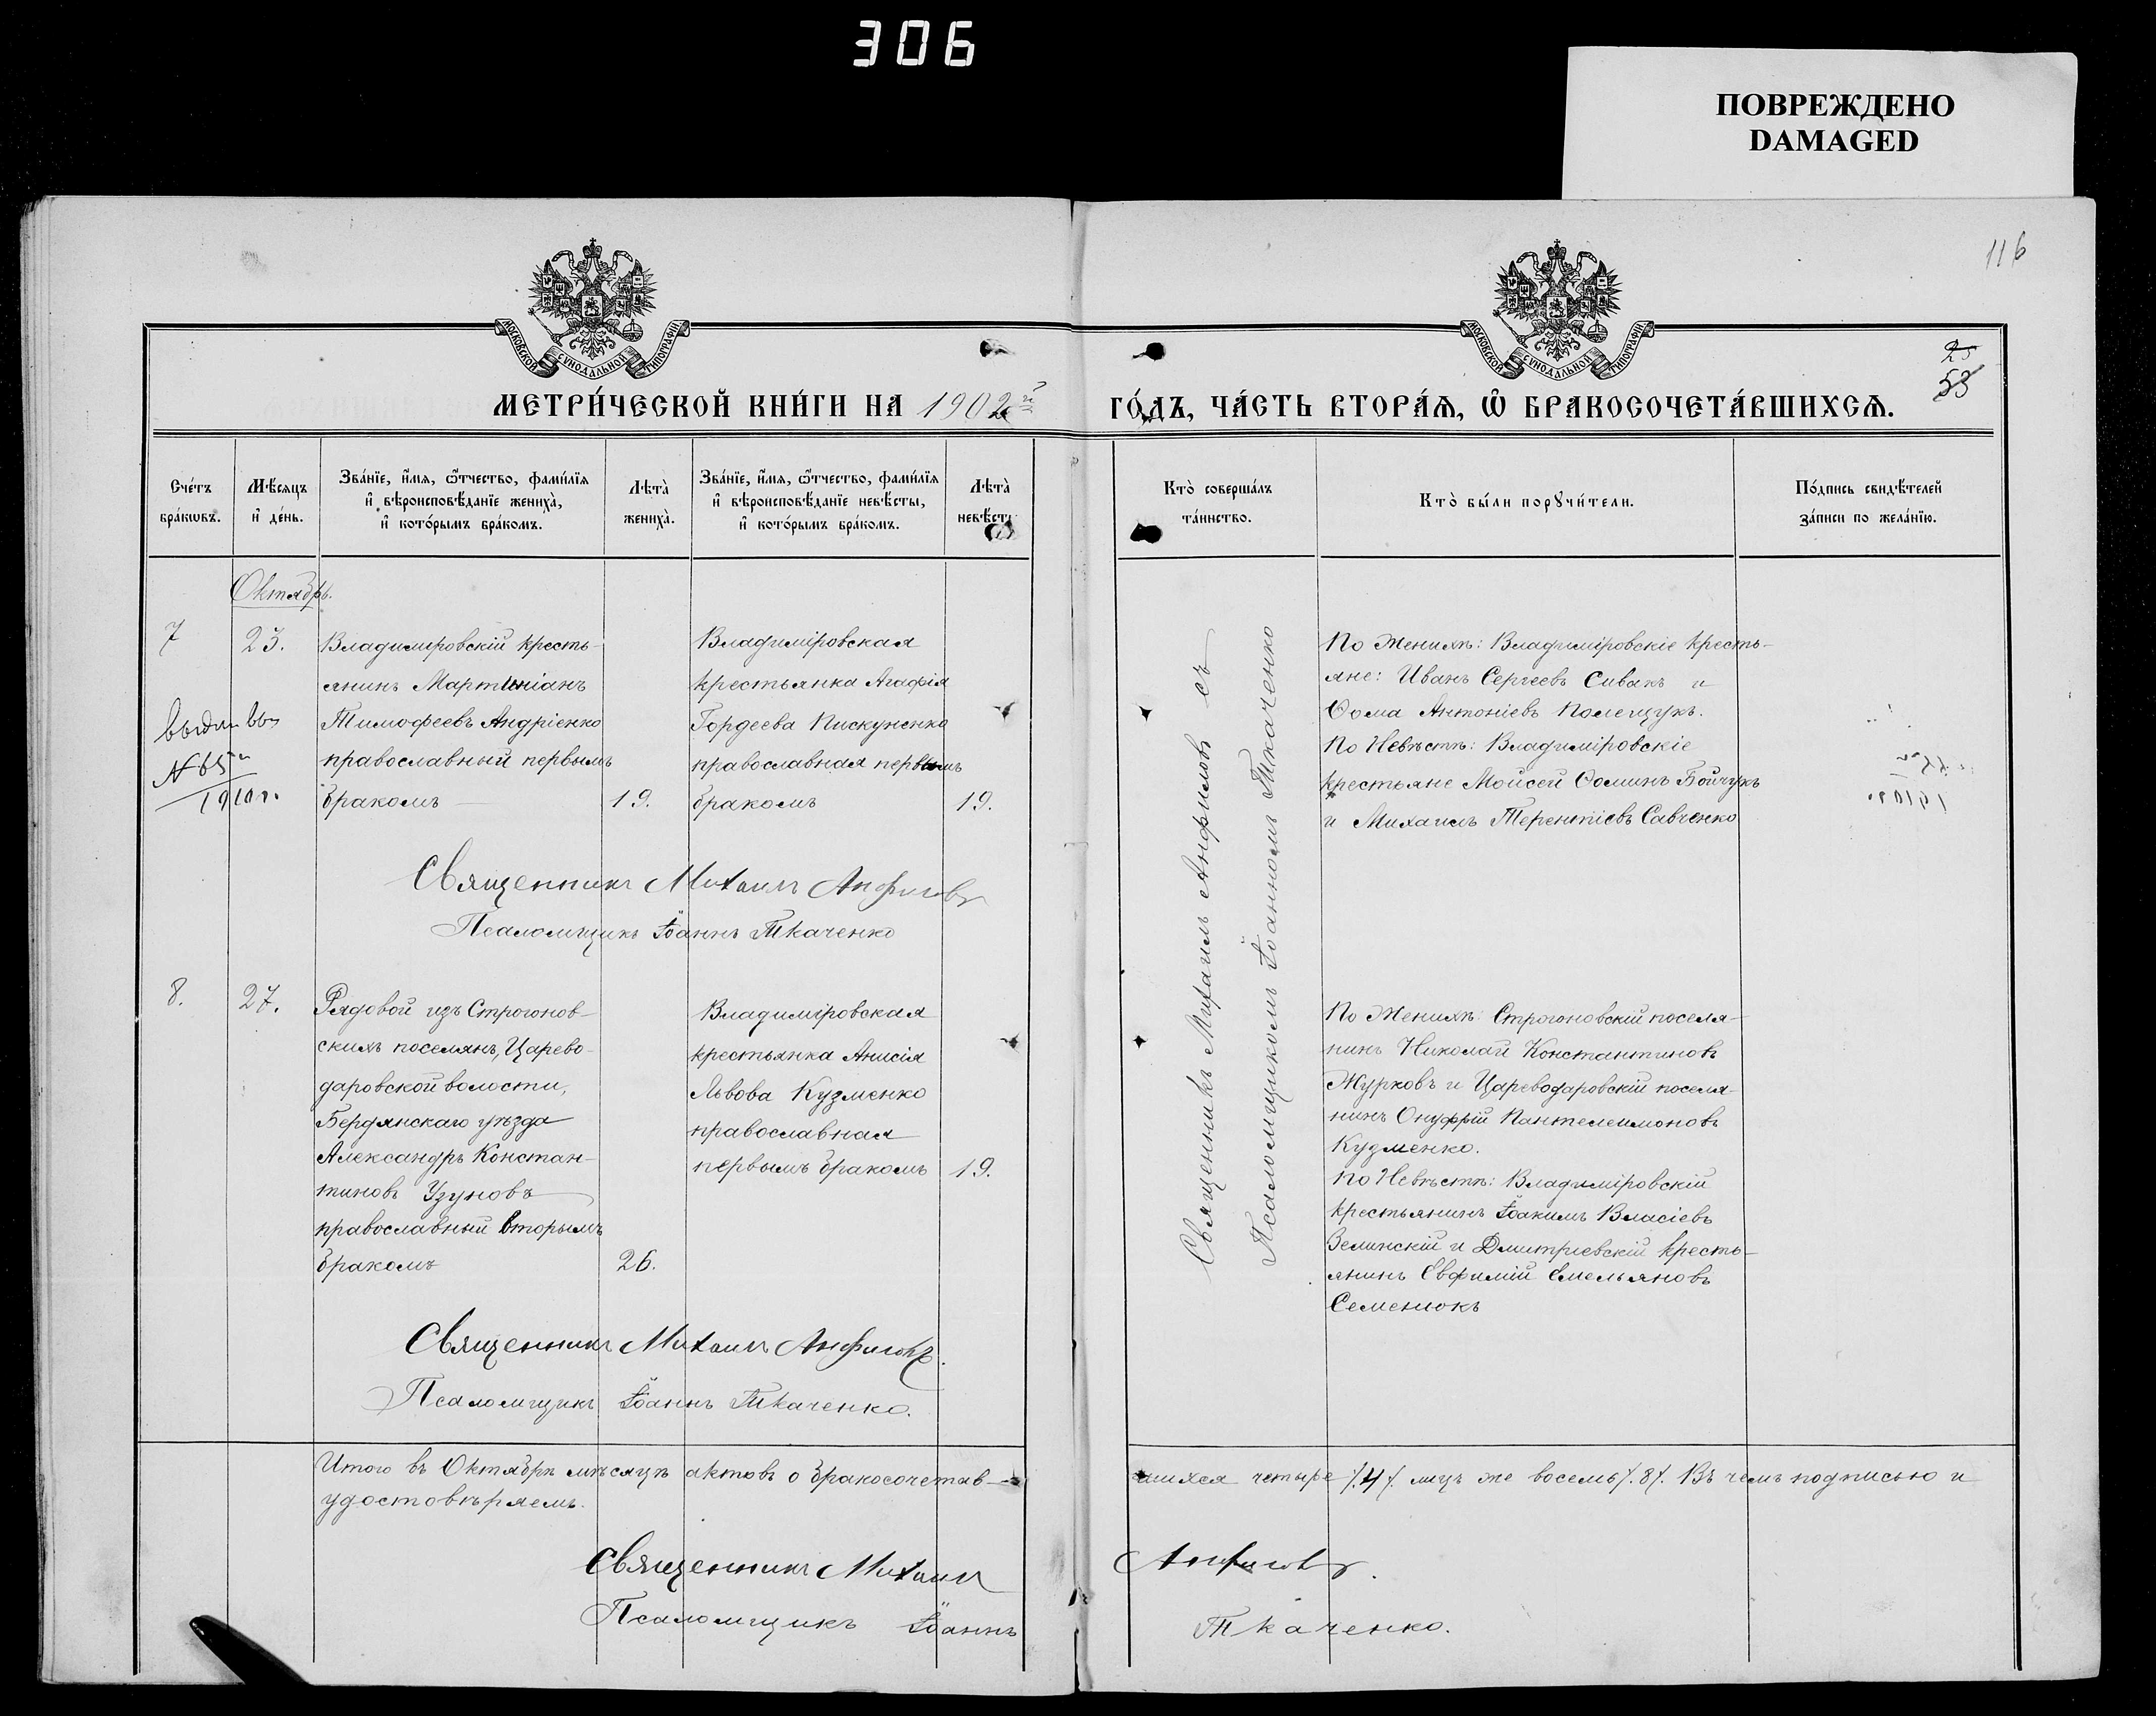 306
ПОВРЕЖДЕНО
DAMAGED
116
МОСКОВСКОЙ СѴНОДАЛЬНОЙ ТИПОГРАФІИ
МОСКОВСКОЙ СѴНОДАЛЬНОЙ ТИПОГРАФІИ
25
53
МЕТРИ́ЧЕСКОЙ КНИ́ГИ НА 1902й
ГО́ДЪ, ЧА́СТЬ ВТОРА́Ѧ, Ѽ БРАКОСОЧЕТА́ВШИХСѦ.
Счéтъ бра́кѡвъ.
Мѣ́сяцъ и҆ де́нь.
Зва́нїе, и҆́мѧ, ѻ҆́тчество, фами́лїѧ и҆ вѣроисповѣ́данїе женихà, и҆ кото́рымъ бра́комъ.
Лѣтà женихà.
Зва́нїе, и҆́мѧ, ѻ҆́тчество, фами́лїѧ и҆ вѣроисповѣ́данїе невѣ́сты, и҆ кото́рымъ бра́комъ.
Лѣтà невѣ́сты
Ктò соверша́лъ та́инство.
Ктò бы́ли порꙋчи́тели.
По́дпись свидѣ́телей за́писи по жела́нїю.
Октябрь.
7
23.
Владиміровскій кресть-
янинъ Мартиніанъ
Тимофеевъ Андріенко
православный первымъ
бракомъ
19.
Владиміровская
крестьянка Агафія
Гордеева Пискуненко
православная первымъ
бракомъ
19.
N 65
1910 г.
По Женихѣ: Владиміровскіе кресть-
яне: Иванъ Сергеевъ Сивакъ и
Ѳома Антоніевъ Полещукъ.
По Невѣстѣ: Владиміровскіе
крестьяне Мойсей Ѳоминъ Бойчукъ
и Михаилъ Терентіевъ Савченко
Священникъ Михаилъ Анфиловъ
Псаломщикъ Іоаннъ Ткаченко
Священникъ Михаилъ Анфиловъ съ
Псаломщикомъ Іоанномъ Ткаченко
8.
27.
Рядовой изъ Строгонов-
скихъ поселянъ, Царево-
даровской волости,
Бердянскаго уѣзда
Александръ Констан-
тиновъ Узуновъ
православный вторымъ
бракомъ
26.
Владиміровская
крестьянка Анисія
Львова Кузменко
православная
первымъ бракомъ
19.
По Женихѣ: Строгоновскій поселя-
нинъ Николай Константиновъ
Журковъ и Цареводаровскій поселя-
нинъ Онуфрій Пантелеимоновъ
Кузменко.
По Невѣстѣ: Владиміровскій
крестьянинъ Іоакимъ Власіевъ
Зелинскій и Дмитріевскій кресть-
янинъ Евфимій Емельяновъ
Семенюкъ
Священникъ Михаилъ Анфиловъ.
Псаломщикъ Іоаннъ Ткаченко.
Итого въ Октябрѣ мѣсяцѣ актовъ о бракосочетав-
шихся четыре /.4/. лицъ же восемь /.8/. Въ чемъ подписью и
удостовѣряемъ.
Священникъ Михаилъ Анфиловъ.
Псаломщикъ Іоаннъ Ткаченко.